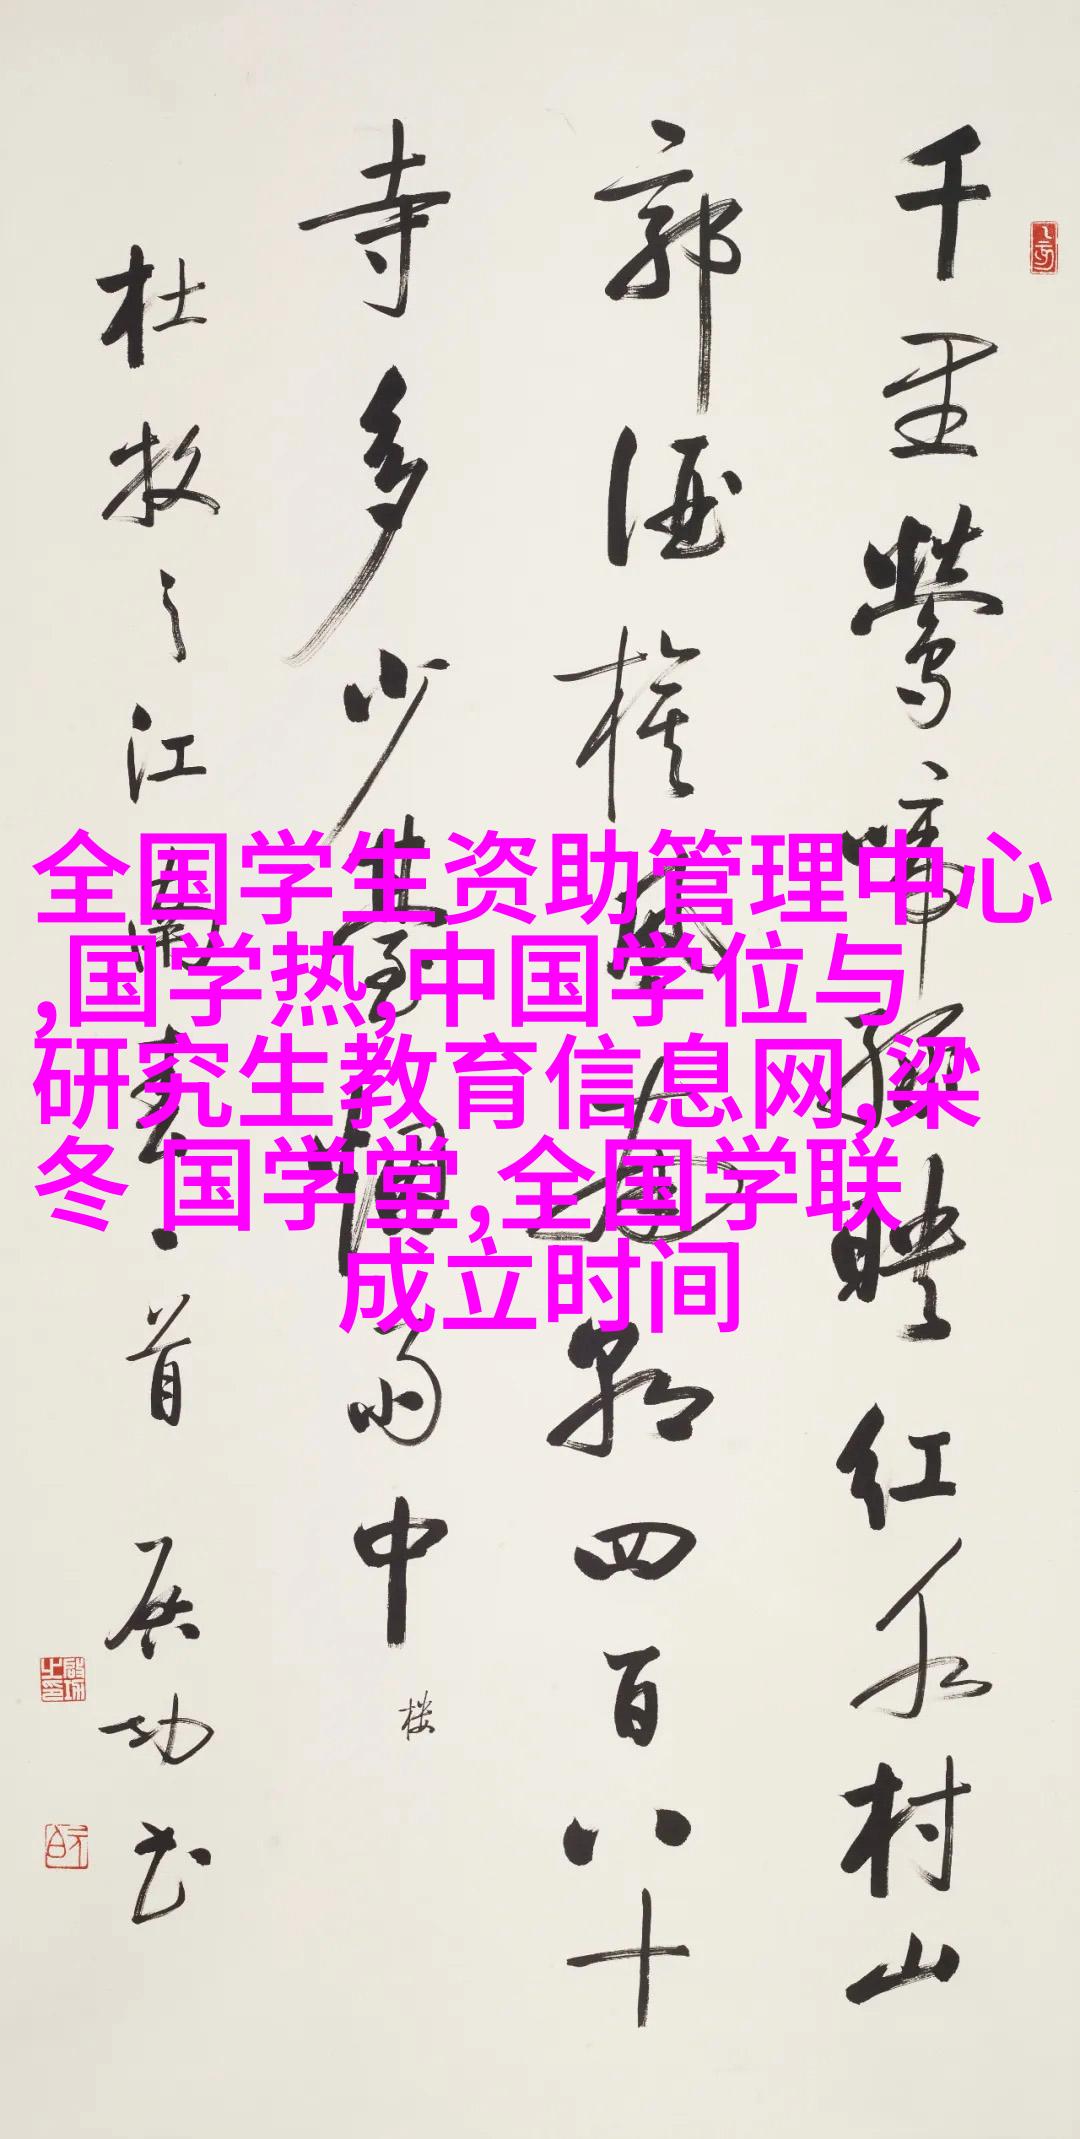 千里鶯啼緑映红水村山
郭酒旗風南朝四百八十
寺多少臺烟雨中
楼
杜牧之江南春一首 启功书
全国学生资助管理中心
,国学热,中国学位与
研究生教育信息网,梁
冬 国学堂,全国学联
成立时间